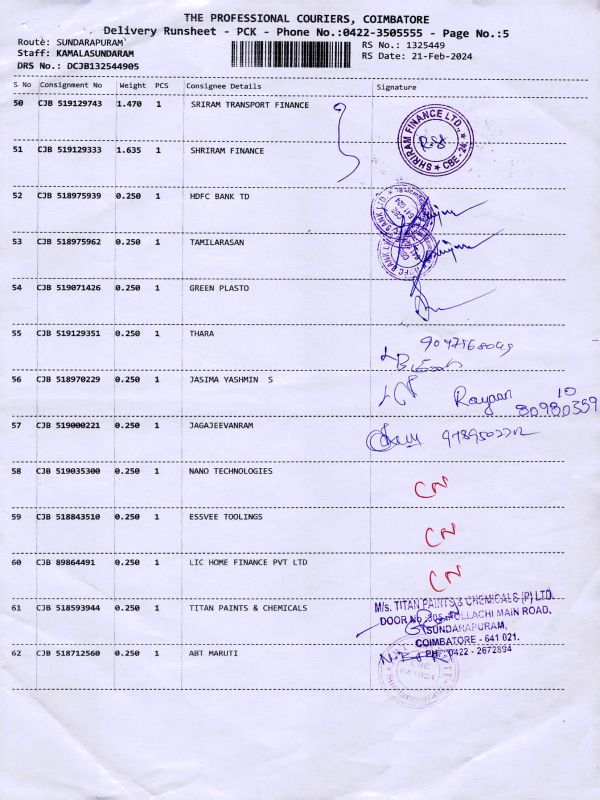 THE PROFESSIONAL COURIERS, COIMBATORE
Delivery Runsheet - PCK - Phone No.:0422-3505555 - Page No.:5
Route: SUNDARAPURAM
RS No.: 1325449
Staff: KAMALASUNDARAM
RS Date: 21-Feb-2024
DRS No.: DCJB132544905
S No Consignment No Weight PCS Consignee Details Signature
50 CJB 519129743 1.470 1 SRIRAM TRANSPORT FINANCE
SHRIRAM FINANCE LTD., CBE-24
51 CJB 519129333 1.635 1 SHRIRAM FINANCE
52 CJB 518975939 0.250 1 HDFC BANK TD
53 CJB 518975962 0.250 1 TAMILARASAN
54 CJB 519071426 0.250 1 GREEN PLASTO
55 CJB 519129351 0.250 1 THARA
56 CJB 518970229 0.250 1 JASIMA YASHMIN S
Rayaan
57 CJB 519000221 0.250 1 JAGAJEEVANRAM
58 CJB 519035300 0.250 1 NANO TECHNOLOGIES CN
59 CJB 518843510 0.250 1 ESSVEE TOOLINGS CN
60 CJB 89864491 0.250 1 LIC HOME FINANCE PVT LTD CN
61 CJB 518593944 0.250 1 TITAN PAINTS & CHEMICALS
M/s. TITAN PAINTS & CHEMICALS (P) LTD.
DOOR No. 305, POLLACHI MAIN ROAD,
SUNDARAPURAM,
COIMBATORE - 641 021.
PH : 0422 - 2672894
62 CJB 518712560 0.250 1 ABT MARUTI